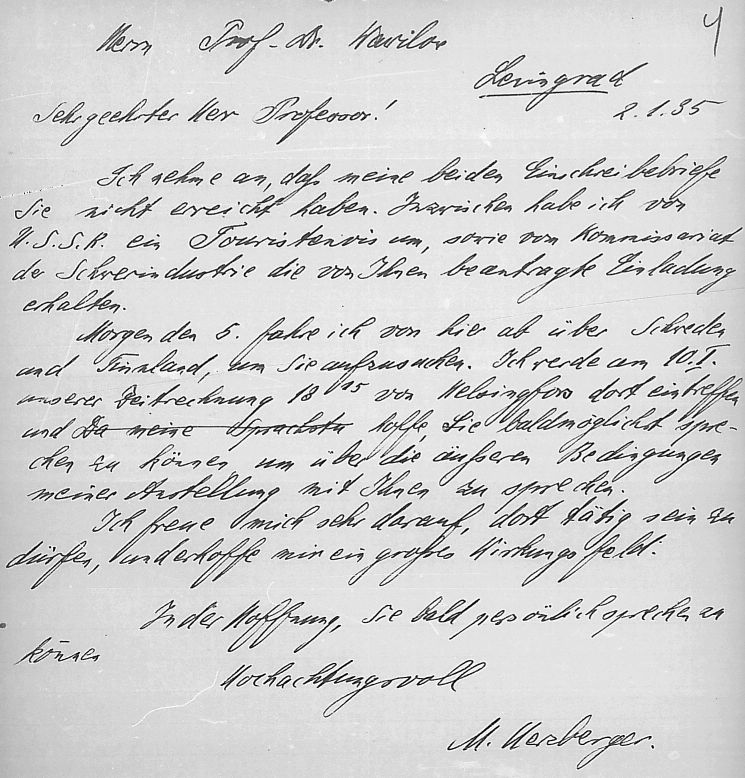 4
Herrn Prof. Dr. Wawilow
Leningrad
2.1.35
Sehr geehrter Herr Professor!
Ich nehme an, daß meine beiden Einschreibebriefe
Sie nicht erreicht haben. Inzwischen habe ich von
U.S.S.R. ein Touristenvisum, sowie vom Kommissariat
der Schwerindustrie die von Ihnen beantragte Einladung
erhalten.
Morgen den 5. fahre ich von hier ab über Schweden
und Finnland, um Sie aufzusuchen. Ich werde am 10.I.
unserer Zeitrechnung 18 15 von Helsingfors dort eintreffen
und Da meine hoffe, Sie baldmöglichst spre-
chen zu können, um über die äußeren Bedingungen
meiner Anstellung mit Ihnen zu sprechen.
Ich freue mich sehr darauf, dort tätig sein zu
dürfen, und erhoffe mir ein großes Wirkungsfeld.
In der Hoffnung, Sie bald persönlich sprechen zu
können
Hochachtungsvoll
M. Herzberger.